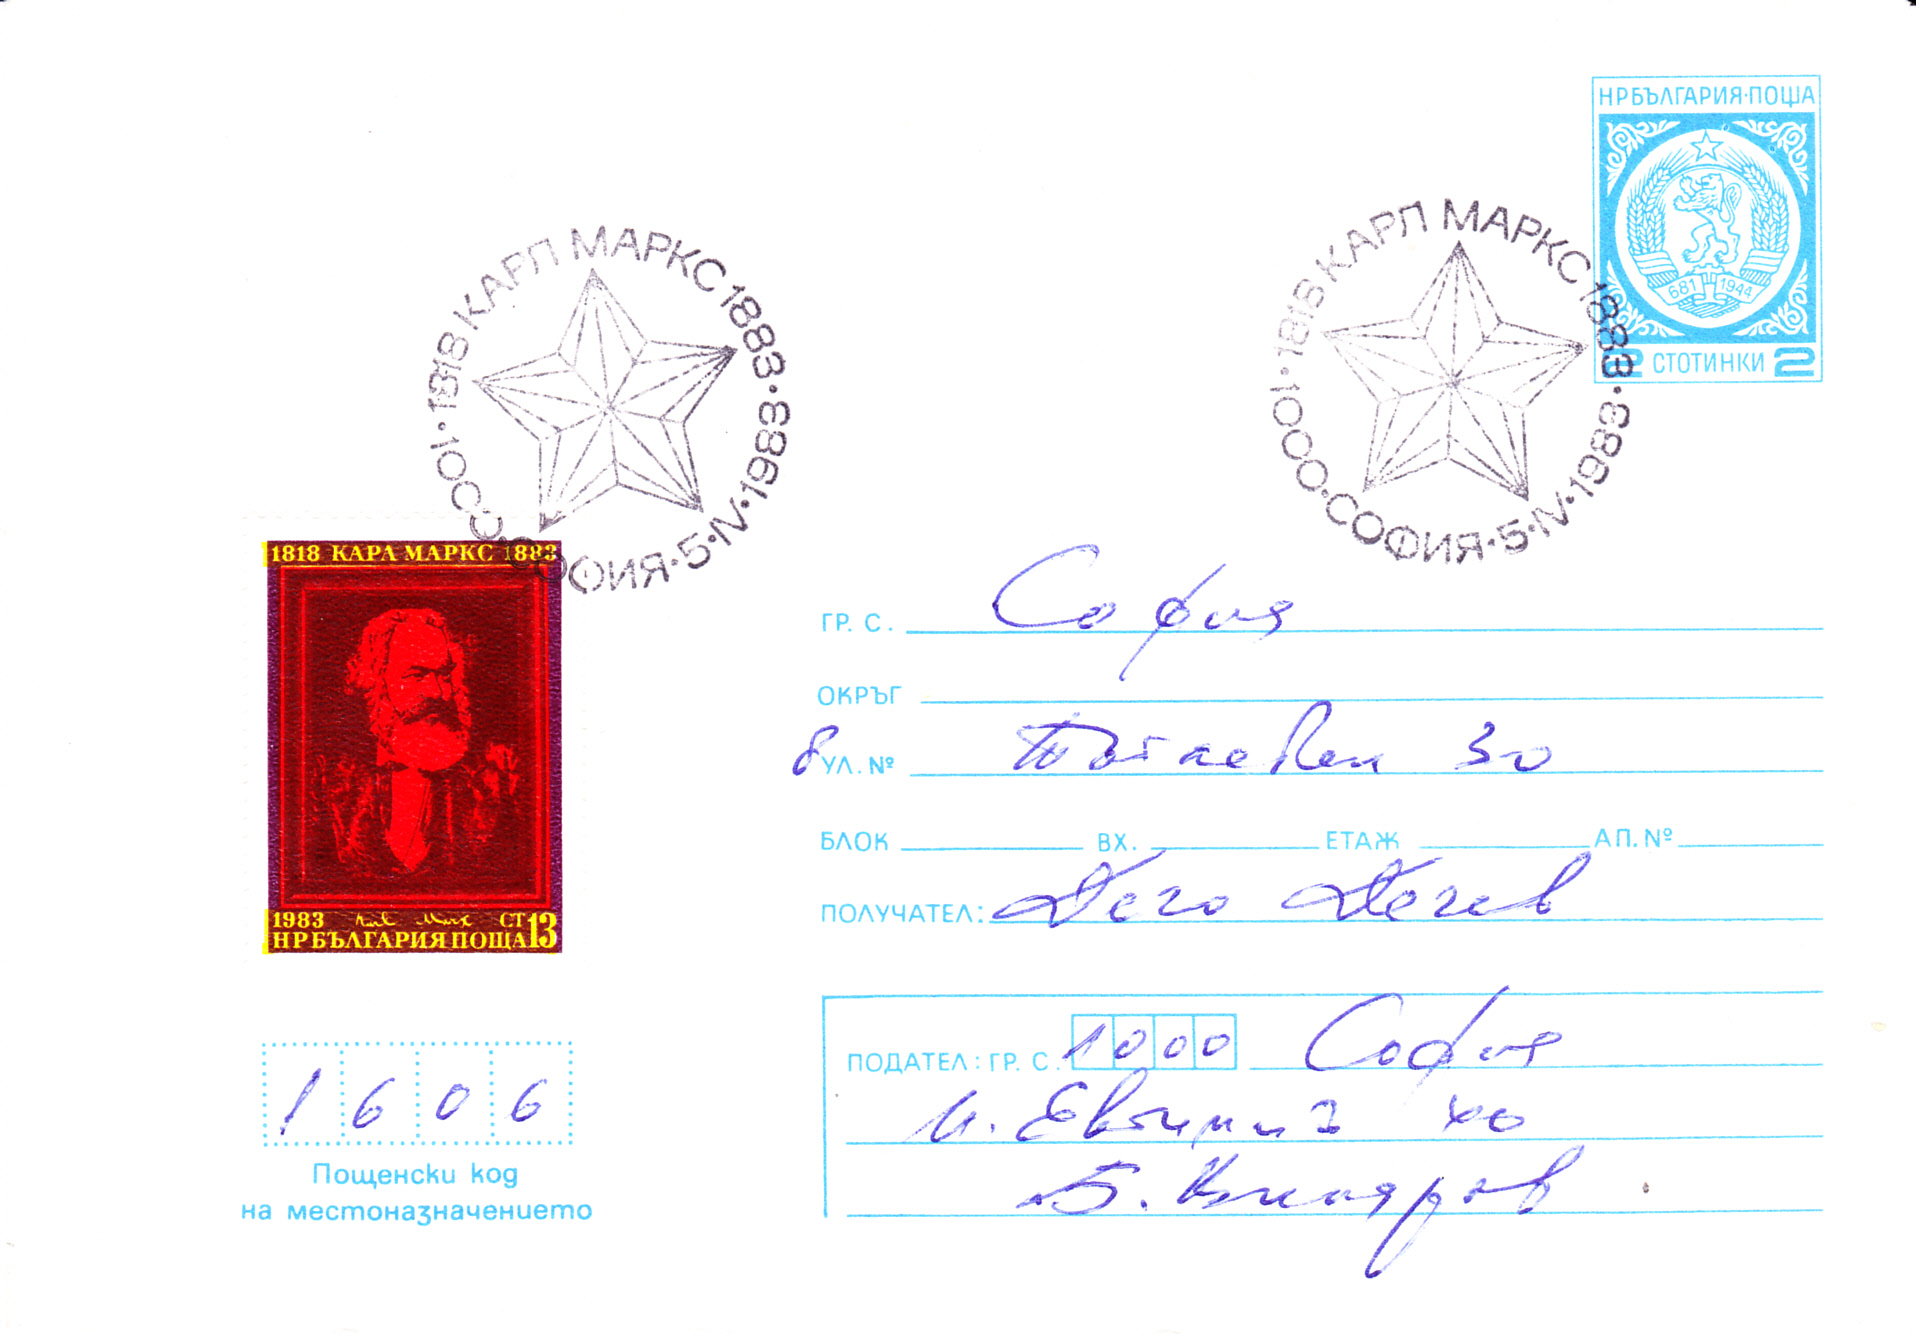 НРБЪЛГАРИЯ·ПОЩА
681 1944
2 СТОТИНКИ 2
1818 КАРЛ МАРКС 1883 · 1000 · СОФИЯ · 5 · IV · 1983 ·
1818 КАРЛ МАРКС 1883 · 1000 · СОФИЯ · 5 · IV · 1983 ·
1818 КАРЛ МАРКС 1883
1983 СТ 13
НРБЪЛГАРИЯ ПОЩА
ГР. С. София
ОКРЪГ
УЛ. № 30
БЛОК ВХ. ЕТАЖ АП. №
ПОЛУЧАТЕЛ: Дечо Дечев
ПОДАТЕЛ: ГР. С. 1000 София
П. Евтимий
Б.
1606
Пощенски код
на местоназначението